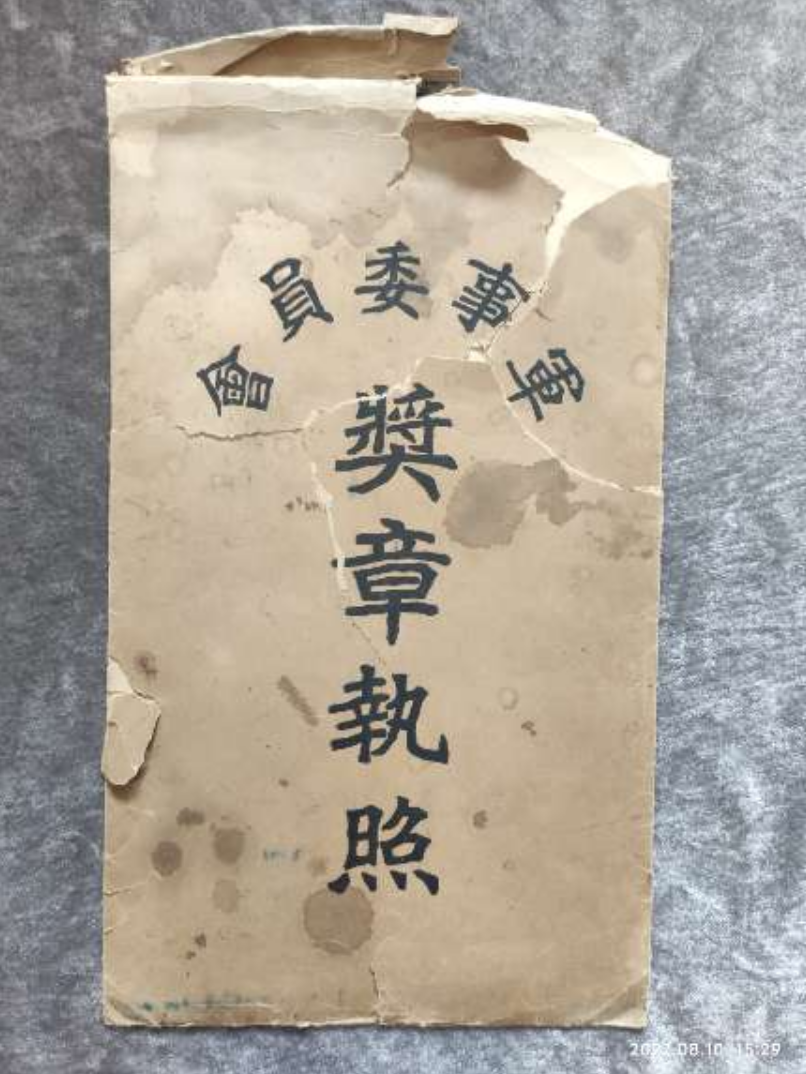 軍事委員會
獎章執照
2022.08.10 15:29